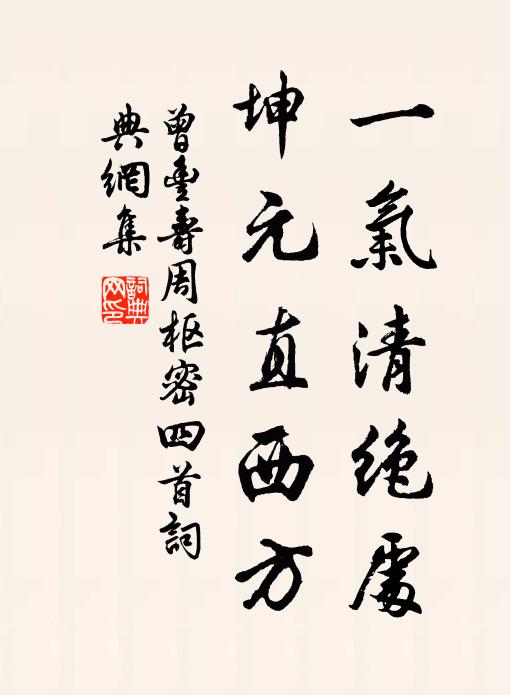 一氣清絶處
坤元直西方
曾豊壽周枢密四首詞
典網集
詞典網印